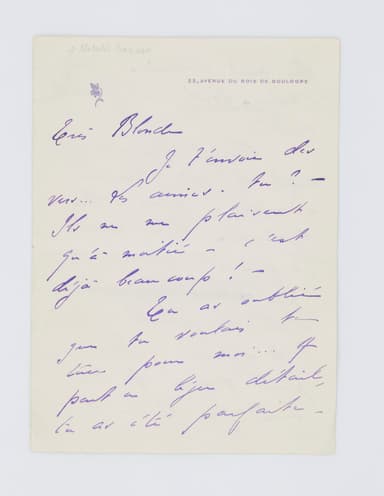 23, AVENUE DU BOIS DE BOULOGNE
Très Blonde
Je t'envoie des
vers... les aimes-tu ? —
Ils ne me plaisent
qu'à moitié — c'est
déjà beaucoup ! —
Tu as oublié
que tu voulais te
tuer pour moi...
part ce léger détail,
tu as été parfaite —